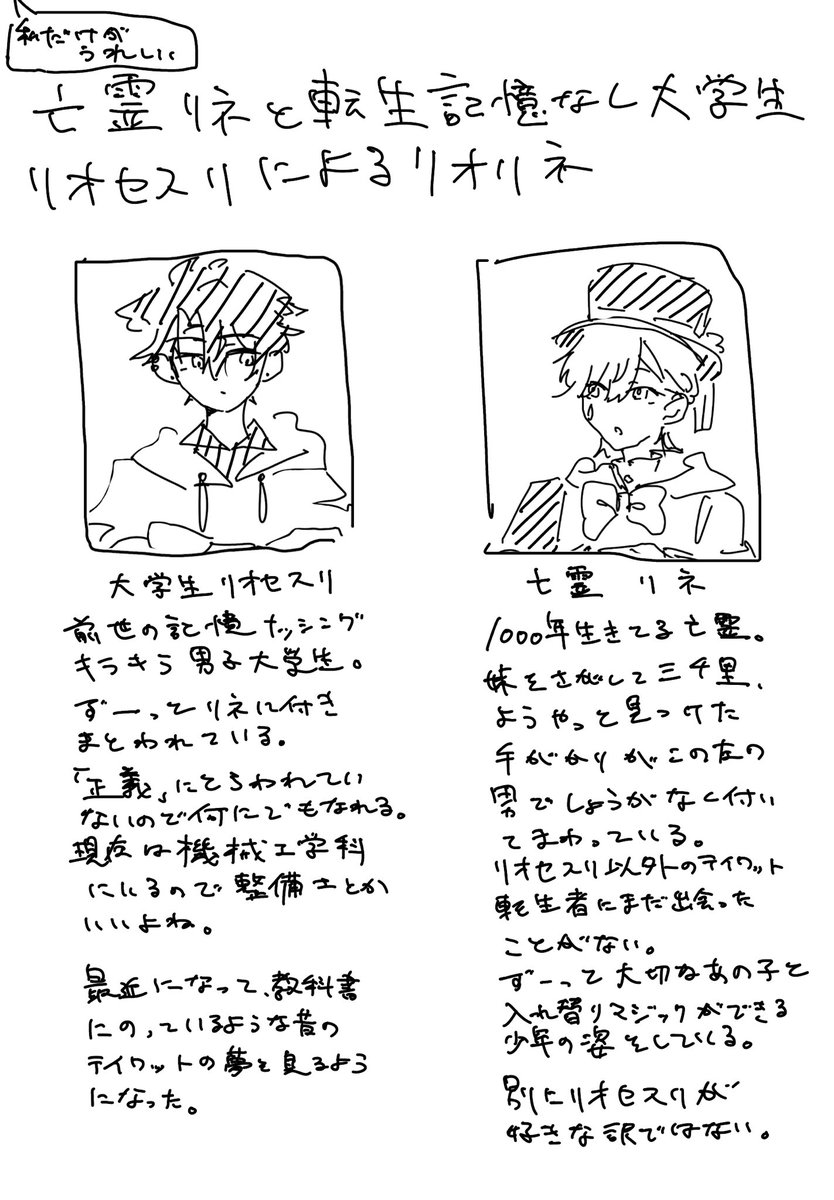 私だけが
うれしい
亡霊リネと転生記憶なし大学生
リオセスリによるリオリネ
大学生リオセスリ
前世の記憶ナッシング
キラキラ男子大学生。
ずーっとリネに付き
まとわれている。
「正義」にとらわれてい
ないので何にでもなれる。
現在は機械工学科
にいるので整備士とか
いいよね。
最近になって、教科書
にのっているような昔の
テイワットの夢を見るよう
になった。
亡霊 リネ
1000年生きてる亡霊。
妹をさがして三千里、
ようやっと見つけた
手がかりがこの左の
男でしょうがなく付い
てまわっている。
リオセスリ以外のテイワット
転生者にまだ出会った
ことがない。
ずーっと大切なあの子と
入れ替りマジックができる
少年の姿をしている。
別にリオセスリが
好きな訳ではない。